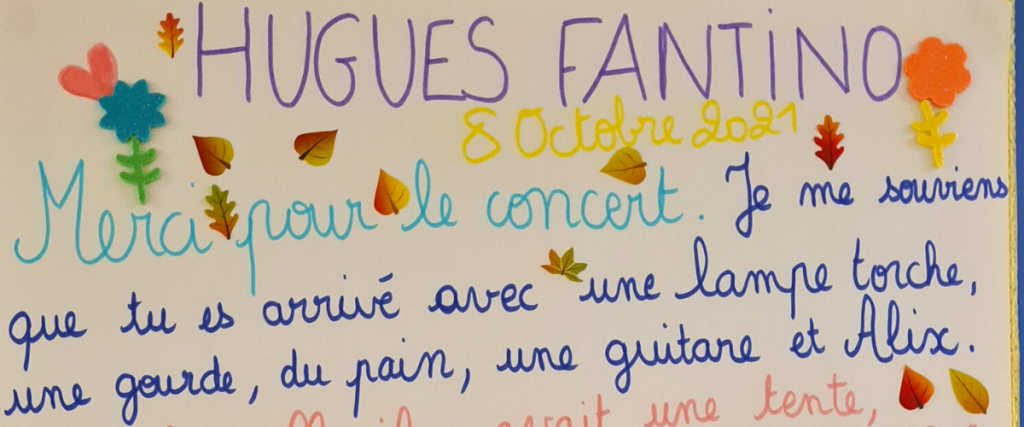 HUGUES FANTINO
8 Octobre 2021
Merci pour le concert. Je me souviens
que tu es arrivé avec une lampe torche,
une gourde, du pain, une guitare et Alix.
il avait une tente,